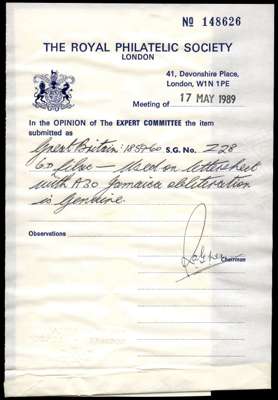 No 148626
THE ROYAL PHILATELIC SOCIETY
LONDON
41, Devonshire Place,
London, W1N 1PE
Meeting of 17 MAY 1989
In the OPINION of The EXPERT COMMITTEE the item
submitted as
Great Britain: 1857-60 S.G. No. Z28
6d lilac — Used on lettersheet
with A30 Jamaica obliteration
is Genuine
Observations
Chairman